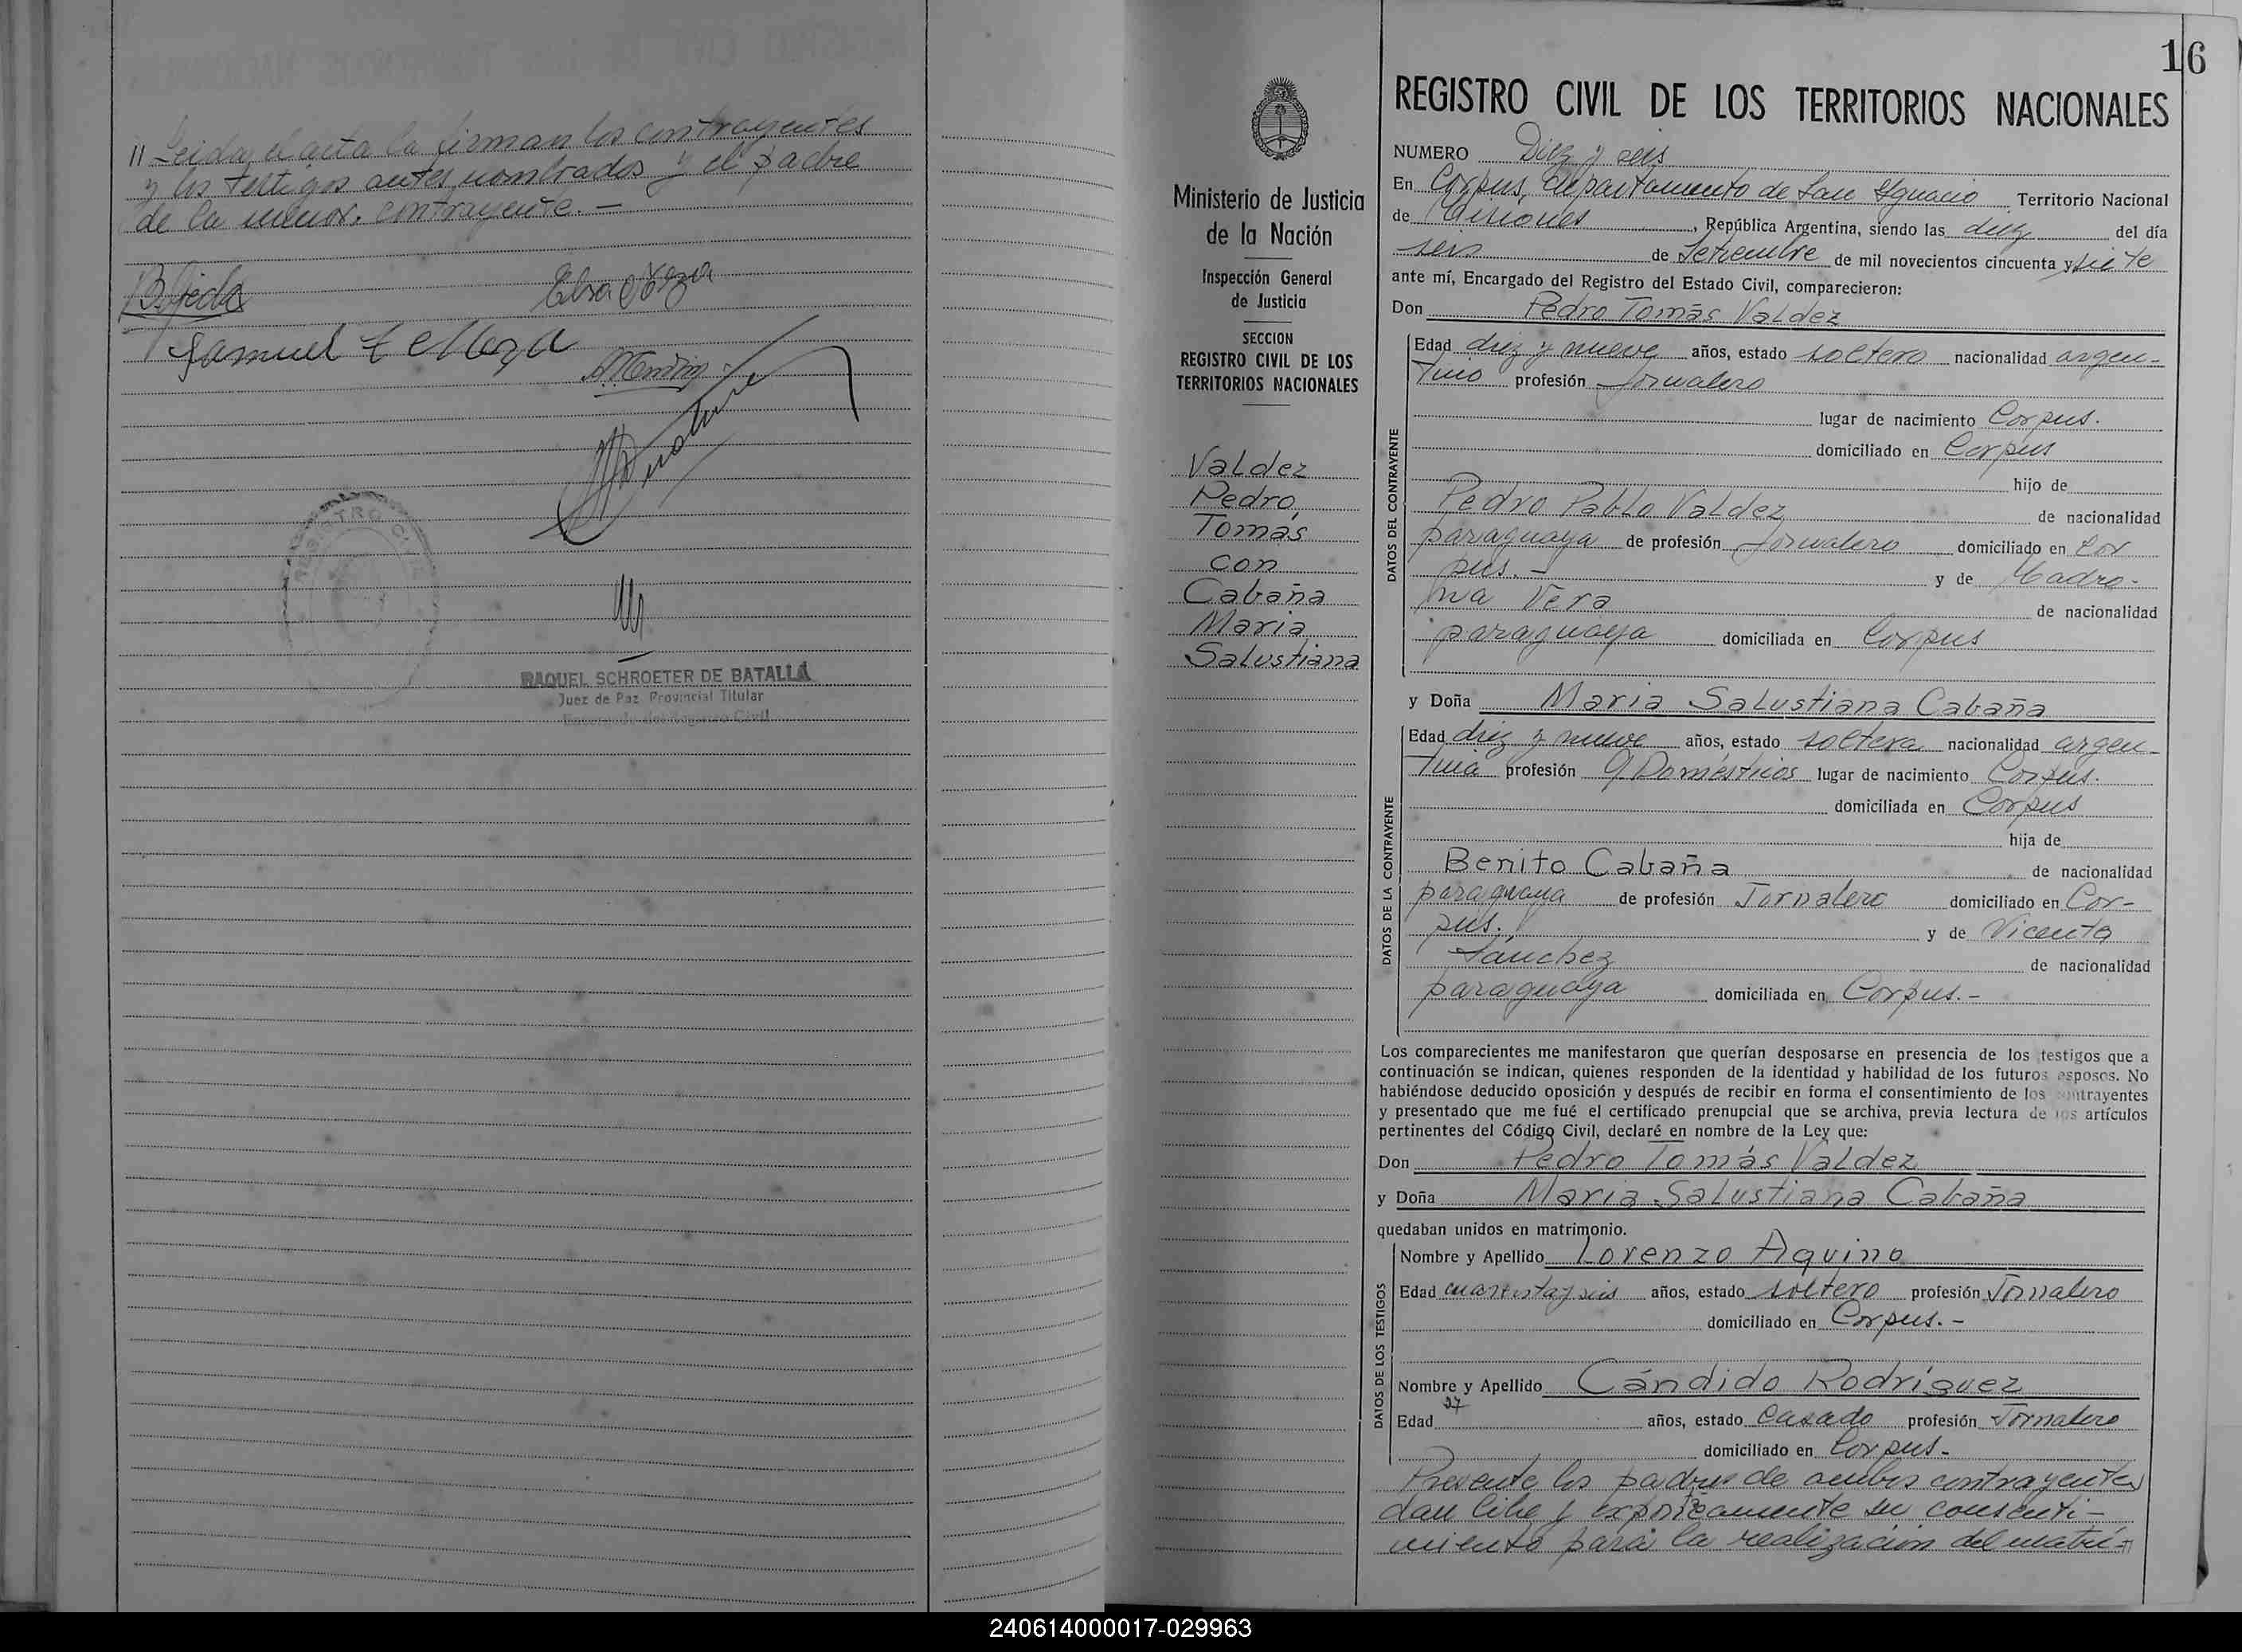 // Leida el acta la firman los contrayentes
y los testigos antes nombrados y el padre
de la menor contrayente. —
B. Ojeda
Elsa
Samuel
REGISTRO CIVIL
RAQUEL SCHROETER DE BATALLA
Juez de Paz Provincial Titular
Encargado del Registro Civil
16
Ministerio de Justicia
de la Nación
Inspección General
de Justicia
SECCION
REGISTRO CIVIL DE LOS
TERRITORIOS NACIONALES
Valdez
Pedro
Tomás
con
Cabaña
Maria
Salustiana
REGISTRO CIVIL DE LOS TERRITORIOS NACIONALES
NUMERO Diez y seis
En Corpus, departamento de San Ignacio Territorio Nacional
de Misiones, República Argentina, siendo las diez del día
seis de Setiembre de mil novecientos cincuenta y siete
ante mí, Encargado del Registro del Estado Civil, comparecieron:
Don Pedro Tomás Valdez
DATOS DEL CONTRAYENTE
Edad diez y nueve años, estado soltero nacionalidad argen-
tino profesión Jornalero
lugar de nacimiento Corpus.
domiciliado en Corpus
hijo de
Pedro Pablo Valdez de nacionalidad
paraguaya de profesión Jornalero domiciliado en Cor
pus. — y de
Vera de nacionalidad
paraguaya domiciliada en Corpus
y Doña Maria Salustiana Cabaña
DATOS DE LA CONTRAYENTE
Edad diez y nueve años, estado soltera nacionalidad argen-
tina profesión Q Domésticos lugar de nacimiento Corpus.
domiciliada en Corpus
hija de
Benito Cabaña de nacionalidad
paraguaya de profesión Jornalero domiciliado en Cor-
pus. y de Vicenta
Sánchez de nacionalidad
paraguaya domiciliada en Corpus. -
Los comparecientes me manifestaron que querían desposarse en presencia de los testigos que a
continuación se indican, quienes responden de la identidad y habilidad de los futuros esposos. No
habiéndose deducido oposición y después de recibir en forma el consentimiento de los contrayentes
y presentado que me fué el certificado prenupcial que se archiva, previa lectura de los artículos
pertinentes del Código Civil, declaré en nombre de la Ley que:
Don Pedro Tomás Valdez
y Doña Maria Salustiana Cabaña
quedaban unidos en matrimonio.
DATOS DE LOS TESTIGOS
Nombre y Apellido Lorenzo Aquino
Edad cuarenta y seis años, estado soltero profesión Jornalero
domiciliado en Corpus. -
Nombre y Apellido Cándido Rodríguez
Edad 27 años, estado Casado profesión Jornalero
domiciliado en Corpus-
Presente los padres de ambos contrayentes
dan libre y expontcamente su consenti-
miento para la realización del matri-
240614000017-029963